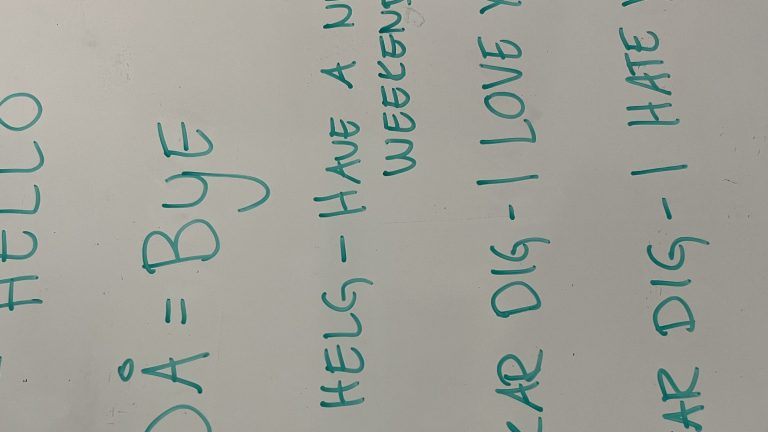 HELLO
DÅ = BYE
HELG - HAVE A
WEEKEND
DIG - I LOVE
DIG - I HATE